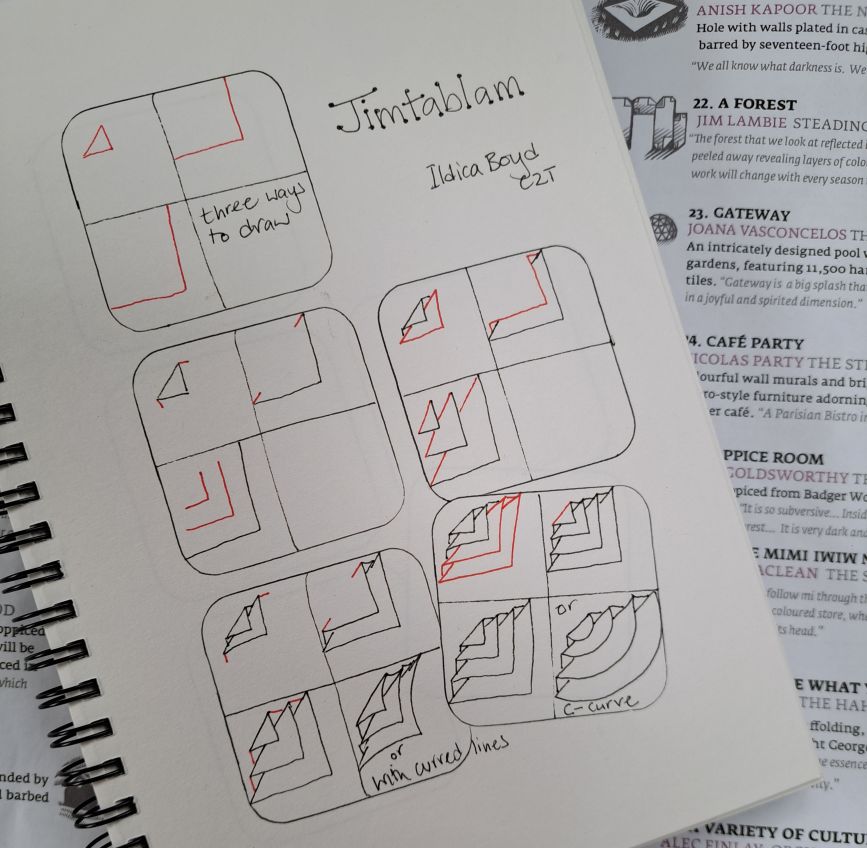 Jimtablam
Ildica Boyd
CZT
three ways
to draw
or
with curved lines
or
c-curve
ANISH KAPOOR THE N
Hole with walls plated in cas
barred by seventeen-foot hi
"We all know what darkness is. We
22. A FOREST
JIM LAMBIE STEADING
"The forest that we look at reflected i
peeled away revealing layers of colo
work will change with every season
23. GATEWAY
JOANA VASCONCELOS TH
An intricately designed pool w
gardens, featuring 11,500 ha
tiles. "Gateway is a big splash tha
in a joyful and spirited dimension."
4. CAFÉ PARTY
NICOLAS PARTY THE STE
ourful wall murals and bri
ro-style furniture adorning
er café. "A Parisian Bistro in
PPICE ROOM
GOLDSWORTHY TH
ppiced from Badger Wo
"It is so subversive... Insid
rest... It is very dark and
E MIMI IWIW N
ACLEAN THE S
follow mi through th
coloured store, whe
ts head."
E WHAT Y
THE HAH
ffolding,
ht George
ve essence
ity."
VARIETY OF CULTU
ALEC FINLAY
OD
oppiced
vill be
ced in
which
nded by
d barbed